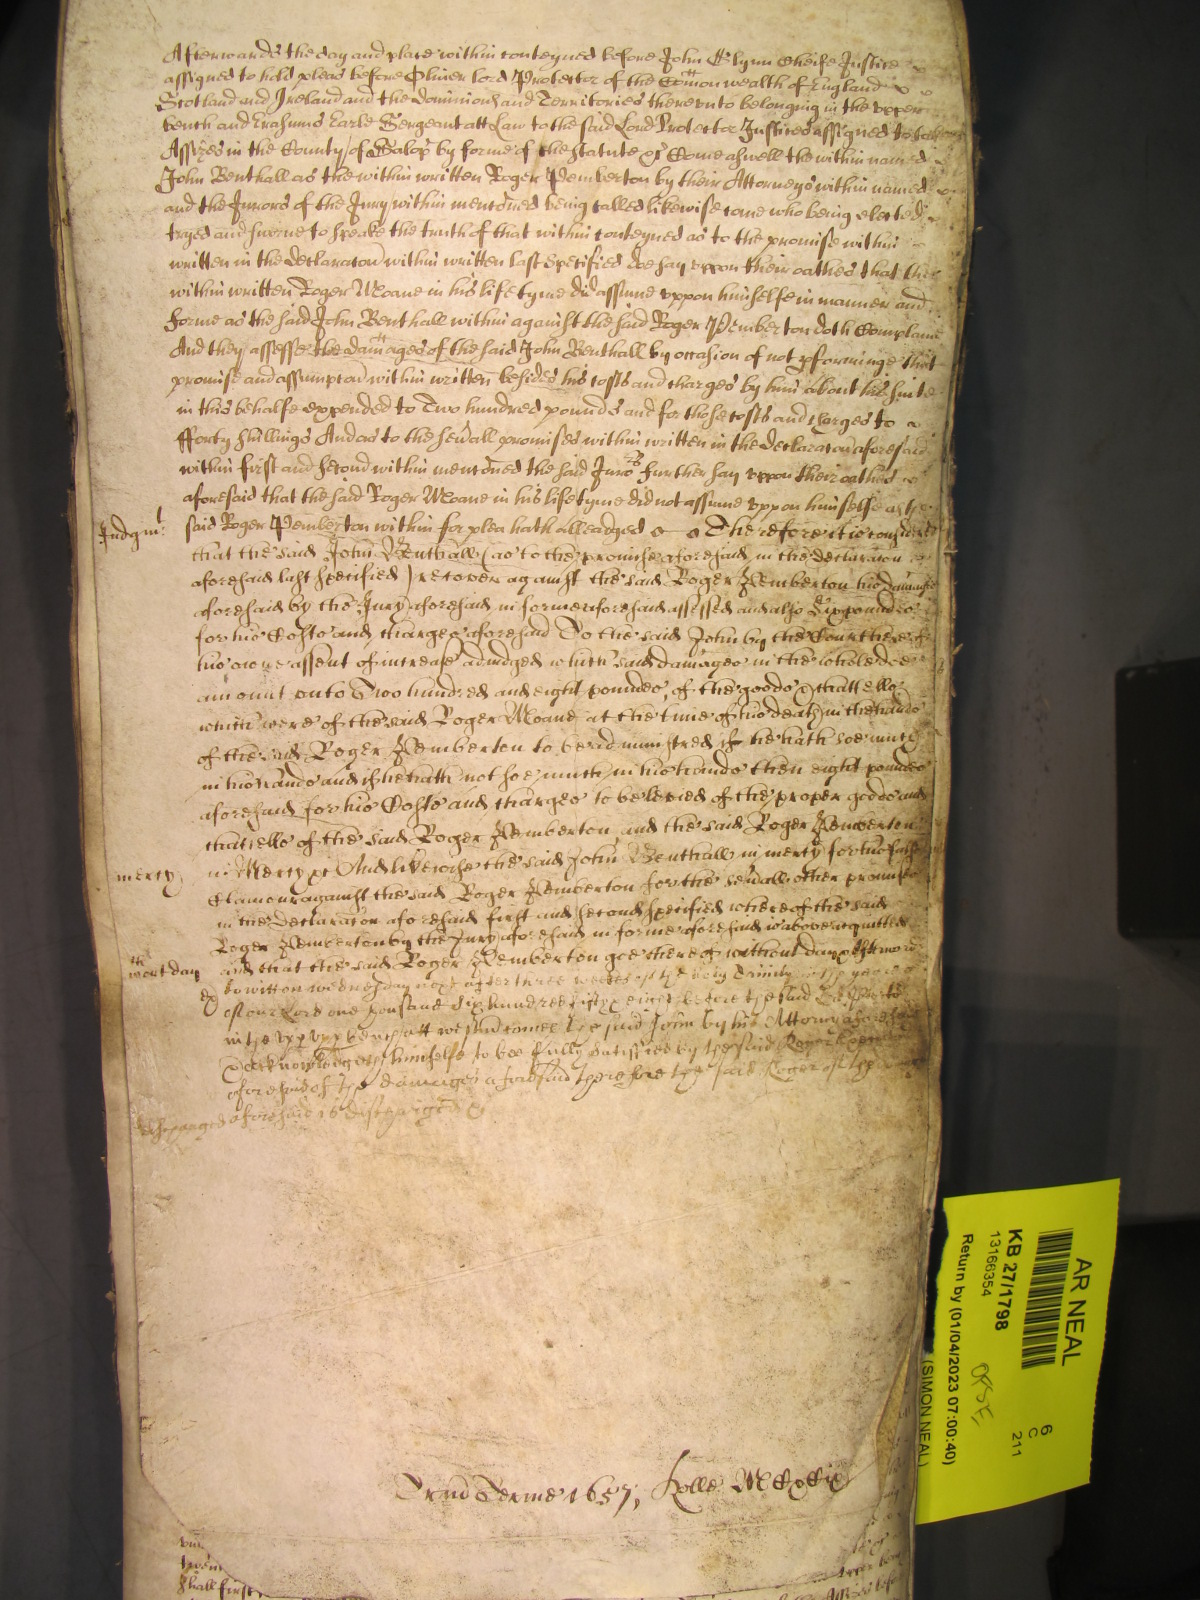 Afterwards the day and place within conteyned before John Glynn Cheife Justice
assigned to hold pleas before Oliver Lord Protector of the Comonwealth of England
Scotland and Ireland and the Dominions and Territories thereunto belonging in the upper
bench and Erasmus Earle Sergeant att Law to the said Lord Protector Justices assigned to take
Assizes in the County of Salop by forme of the statute &c Come aswell the within named
John Benthall as the within written Roger Pemberton by their Attorneys within named
and the Jurors of the Jury within mencõned being called likewise come who being elected
tryed and sworne to speake the truth of that within conteyned as to the promise within
written in the declaracon within written last specified doe say uppon their oathes that the
within written Roger Moane in his life tyme did assume uppon himselfe in manner and
forme as the said John Benthall within against the said Roger Pemberton doth Complane
And they assesse the damages of the said John Benthall by occasion of not pforminge that
promise and assumpcon within written besides his costs and charges by him about his suite
in this behalfe expended to Two hundred pounds and for those costs and charges to
fforty shillings And as to the sevall promises within written in the declaracon aforesaid
within first and second within mencõned the said Juro[rs] further say uppon their oathes
aforesaid that the said Roger Moane in his life tyme did not assume uppon himselfe as the
Judgmt
said Roger Pemberton within for plea hath alleadged Therefore it is considered
that the said John Benthall (as to the promise aforesaid in the declaracon
aforesaid last specified) recover against the said Roger Pemberton his damages
aforesaid by the Jury aforesaid in forme aforesaid assessed and also Six pounds
for his Costs and charges aforesaid To the said John by the Court here of
his owne assent of increase adiudged which said damages in the whole doe
amount unto Two hundred and eight pounds, of the goods & chattells
which were of the said Roger Moane at the time of his death in the hands
of the said Roger Pemberton to be administred if he hath soe much
in his hands and if he hath not soe much in his hands then eight pounds
aforesaid for his Costs and charges to be levied of the proper goods and
chattells of the said Roger Pemberton and the said Roger Pemberton
mercy
in Mercy &c And likewise the said John Benthall in mercy for his false
Clamour against the said Roger Pemberton for the sevall other promises
in the declaracon aforesaid first and second specified whereof the said
Roger Pemberton by the Jury aforesaid in forme aforesaid is above acquitted
wthout day
and that the said Roger Pemberton goe thereof without day &c Afterwards
to witt on wednesday next after three weekes of the holy Trinity in the yeare
of our Lord one thousand six hundred fifty eight before the said Lord Protector
in the upp bench att westm comes the said John by his Attorney aforesaid
& acknowledgeth himselfe to bee fully satisfied by the said Roger Pemberton
aforesaid of the damages aforesaid therefore the said Roger of the
aforesaid is discharged &c
Trin Terme 1657, Rolle
twen
shall first
AR NEAL
KB 27/1798
13166354
Return by (01/04/2023 07:00:40)
(SIMON NEAL)
6
C
211